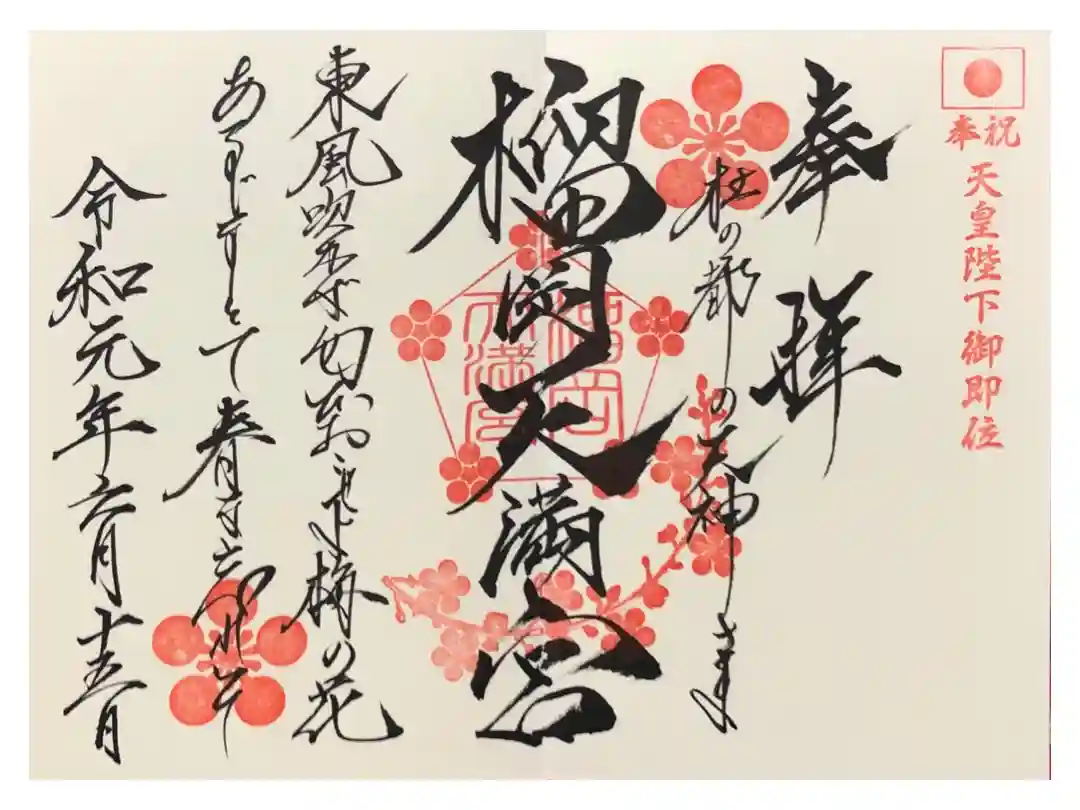 奉祝
天皇陛下御即位
奉拝
杜の都の天神さま
榴岡天満宮
榴岡
天満宮
東風吹かば匂ひおこせよ梅の花
あるじなしとて春な忘れそ
令和元年六月十五日